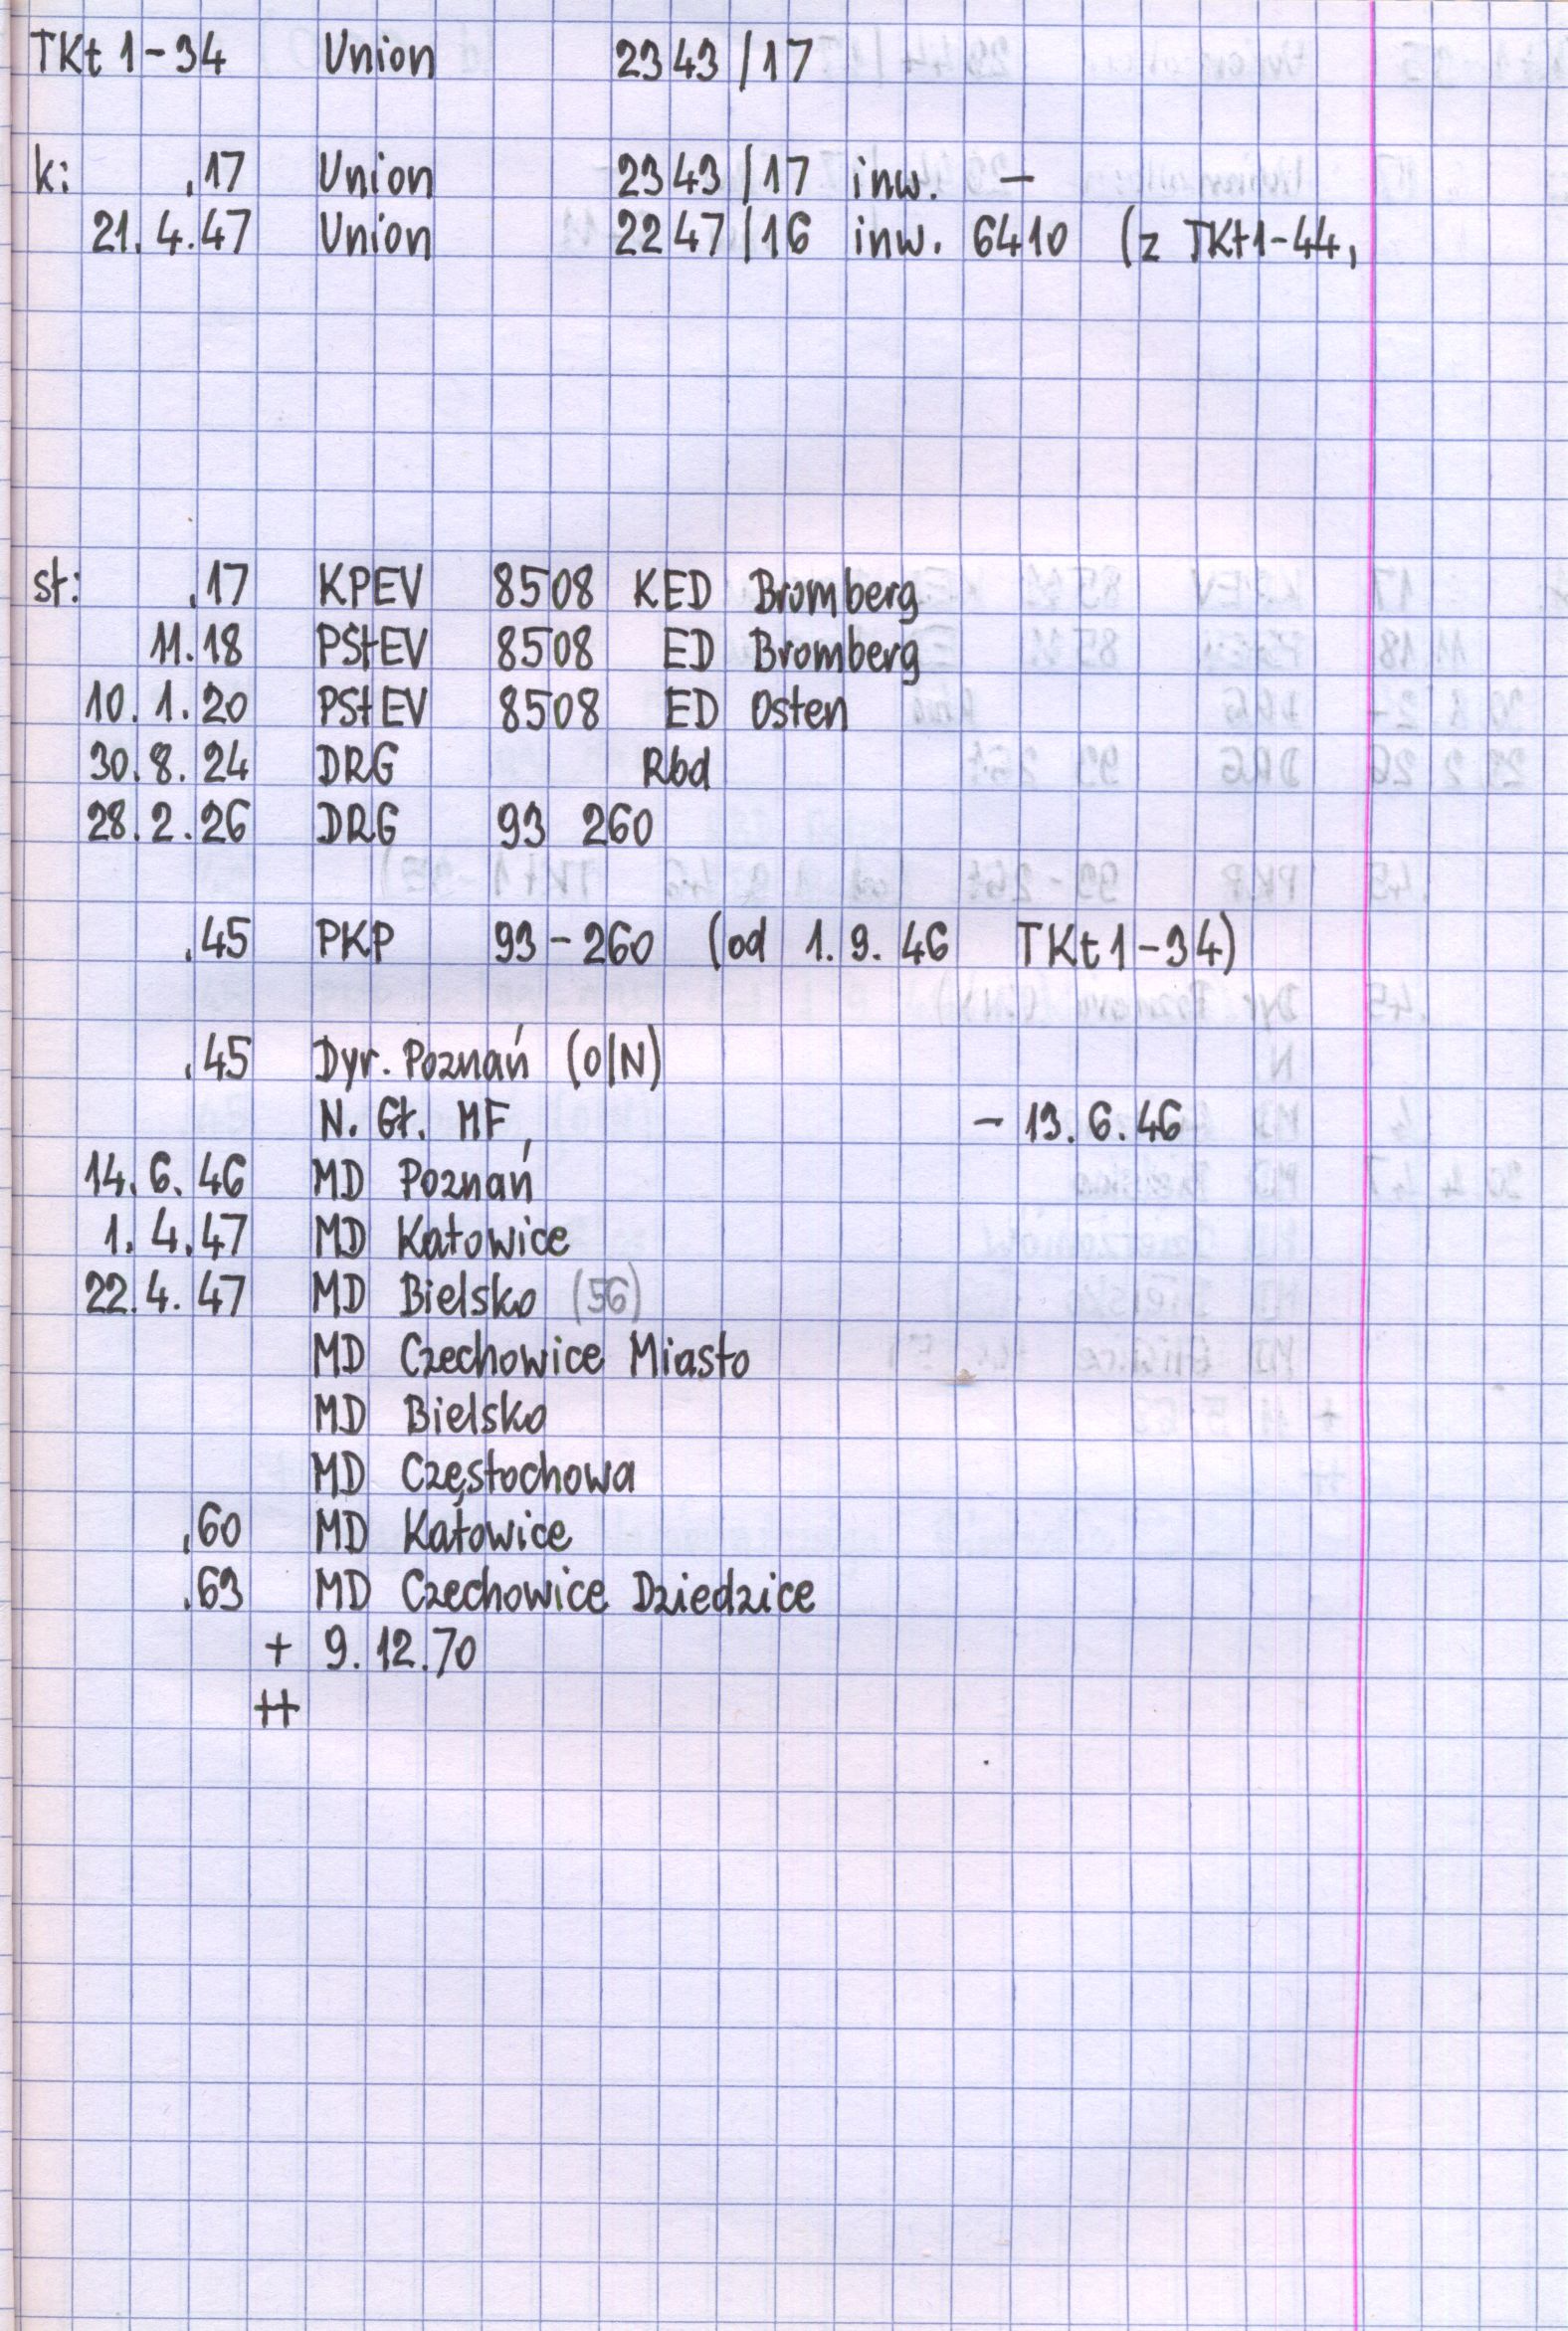 TKt 1-34 Union 2343/17
k: .17 Union 2343/17 inw. -
21.4.47 Union 2247/16 inw. 6410 (z TKt1-44,
st: .17 KPEV 8508 KED Bromberg
11.18 PStEV 8508 ED Bromberg
10.1.20 PStEV 8508 ED Osten
30.8.24 DRG Rbd
28.2.26 DRG 93 260
.45 PKP 93-260 (od 1.9.46 TKt1-34)
.45 Dyr. Poznań (O/N)
N. Gł. MF, - 13.6.46
14.6.46 MD Poznań
1.4.47 MD Katowice
22.4.47 MD Bielsko (56)
MD Czechowice Miasto
MD Bielsko
MD Częstochowa
.60 MD Katowice
.63 MD Czechowice Dziedzice
+ 9.12.70
++